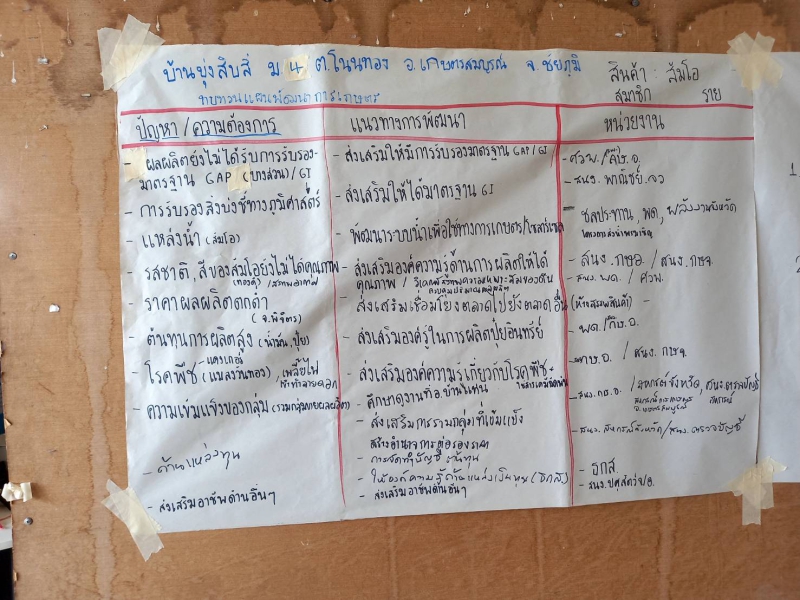 บ้านบุ่งสิบสี่ ม 4 ต.โนนทอง อ.เกษตรสมบูรณ์ จ.ชัยภูมิ
สินค้า : ส้มโอ
สมาชิก ราย
ทบทวนแผนพัฒนาการเกษตร
ปัญหา / ความต้องการ
แนวทางการพัฒนา
หน่วยงาน
- ผลผลิตยังไม่ได้รับการรับรอง-
มาตรฐาน GAP (บางส่วน) / GI
- ส่งเสริมให้มีการรับรองมาตรฐาน GAP / GI
- ศวพ. / กษ.อ.
- สนง. พาณิชย์
- การรับรองสิ่งบ่งชี้ทางภูมิศาสตร์
- ส่งเสริมให้ได้มาตรฐาน GI
- แหล่งน้ำ (ส้มโอ)
- พัฒนาระบบน้ำเพื่อใช้ทางการเกษตร/โซล่าเซลล์
- ชลประทาน, พด, พลังงานจังหวัด
- รสชาติ, สีของส้มโอยังไม่ได้คุณภาพ
- ส่งเสริมองค์ความรู้ด้านการผลิตให้ได้
คุณภาพ /
- สนง. กษอ. / สนง. กษจ.
- สนง. พด. / ศวพ.
- ราคาผลผลิตตกต่ำ
(จ.พิจิตร)
- ส่งเสริมเชื่อมโยงตลาดไปยังตลาดอื่น (ห้างสรรพสินค้า)
- ต้นทุนการผลิตสูง (น้ำมัน, ปุ๋ย)
- ส่งเสริมองค์รู้ในการผลิตปุ๋ยอินทรีย์
- พด. / กษ.อ.
- โรคพืช แคงเกอร์ (แมลงวันทอง), เพลี้ยไฟ
- ส่งเสริมองค์ความรู้เกี่ยวกับโรคพืช
- ศึกษาดูงานที่ อ.บ้านแท่น
- กษ.อ. / สนง. กษจ.
- ความเข้มแข็งของกลุ่ม (รวมกลุ่มขายผลผลิต)
- ส่งเสริมการรวมกลุ่มที่เข้มแข็ง
สร้างอำนาจการต่อรองราคา
- การจัดทำบัญชีต้นทุน
- สนง. กษ.อ. / สหกรณ์จังหวัด, สนง ตรวจบัญชี
สหกรณ์
- สนง. สหกรณ์จังหวัด / สนง. ตรวจบัญชี
- ด้านแหล่งทุน
- ให้องค์ความรู้ด้านแหล่งเงินทุน (ธกส)
- ธกส.
- ส่งเสริมอาชีพด้านอื่นๆ
- ส่งเสริมอาชีพด้านอื่นๆ
- สนง. ปศุสัตว์